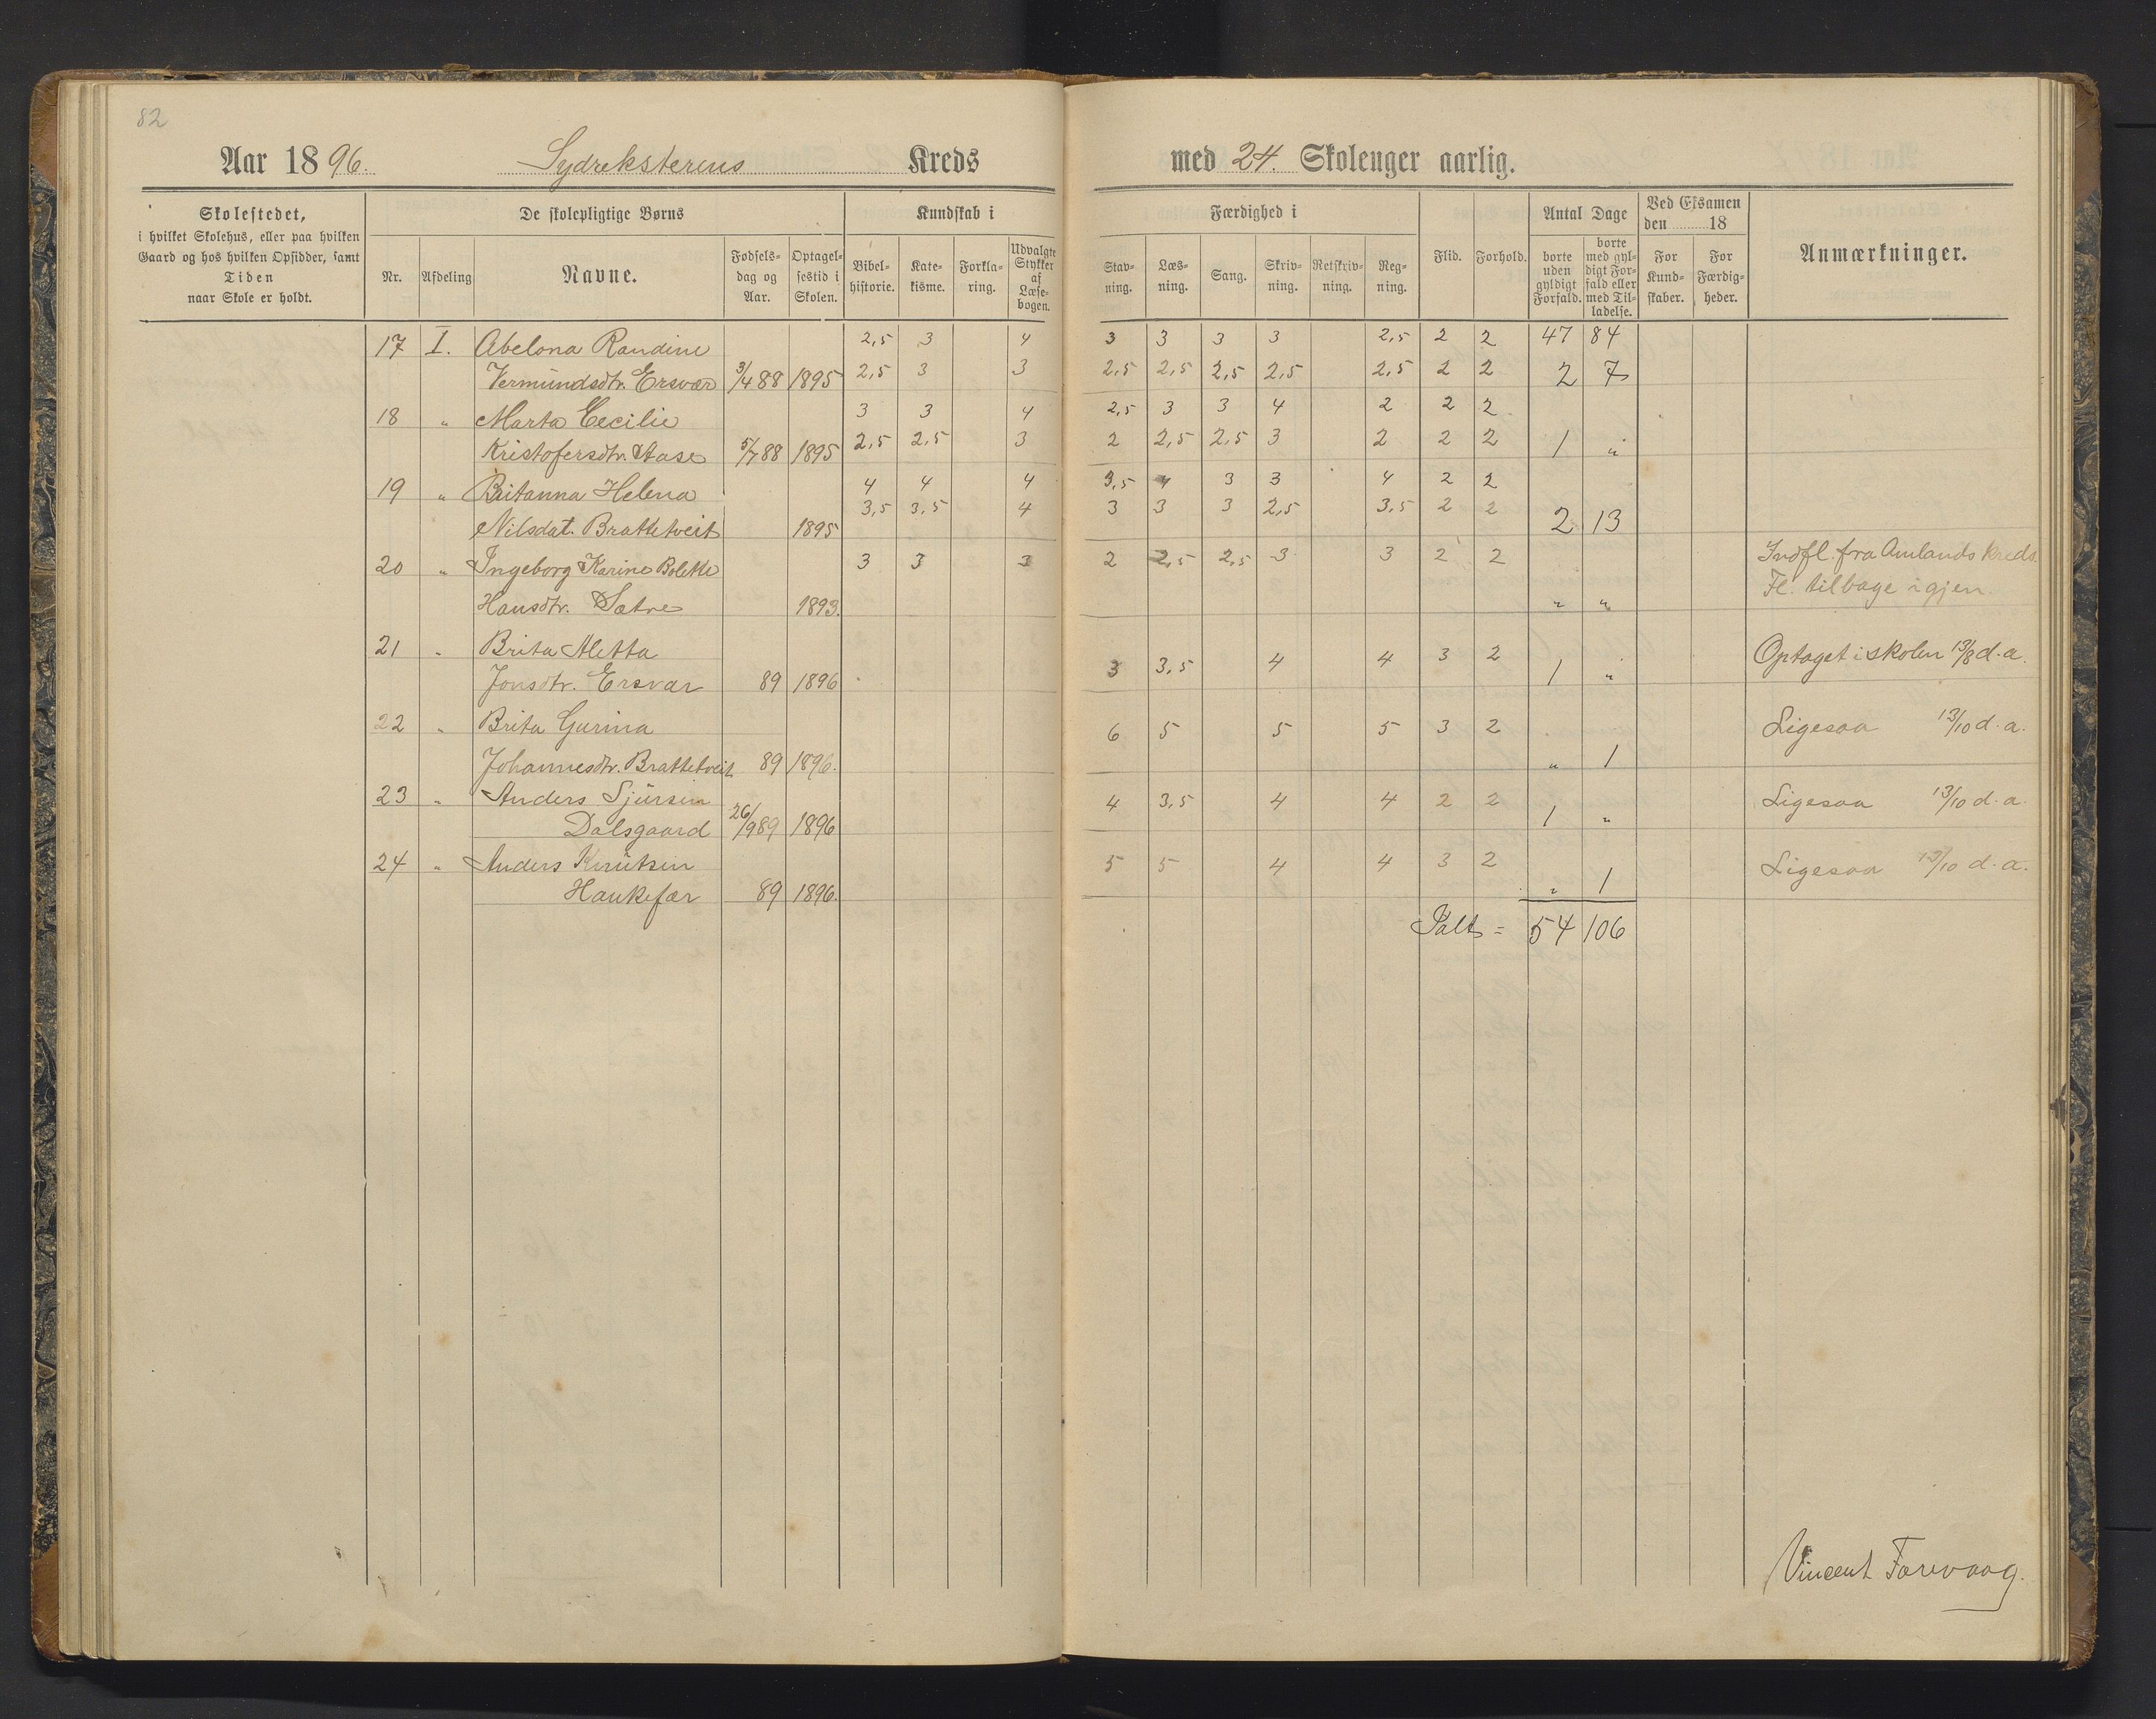 82
Aar 1896. Sydreksterens Kreds med 24. Skoleuger aarlig.
Skolestedet,
i hvilket Skolehus, eller paa hvilken
Gaard og hos hvilken Opsidder, samt
Tiden
naar Skole er holdt.
De skolepligtige Børns
Nr. Afdeling Navne. Fødsels-dag og Aar. Optagel-sestid i Skolen.
Kundskab i
Bibel-historie. Kate-kisme. Forkla-ring. Udvalgte Stykker af Læse-bogen.
Færdighed i
Stav-ning. Læs-ning. Sang. Skriv-ning. Retskriv-ning. Reg-ning.
Flid. Forhold.
Antal Dage
borte uden gyldigt Forfald. borte med gyl-digt For-fald eller med Til-ladelse.
Ved Eksamen
den 18
For Kund-skaber. For Færdig-heder.
Anmærkninger.
17 I. Abelona Randine 2,5 3 4 3 3 3 3 2,5 2 2 47 84
Vermundsdtr. Ersvær 3/4 88 1895 2,5 3 3 2,5 2,5 2,5 2,5 2,5 2 2 2 7
18 " Marta Cecilie 3 3 4 2,5 3 3 4 2 2 2
Kristofersdtr. Aase 5/7 88 1895 2,5 2,5 3 2 2,5 2,5 3 2 2 2 1 "
19 " Britanna Helena 4 4 4 3,5 4 3 3 4 2 2
Nilsdat. Brattetveit 1895 3,5 3,5 4 3 3 3 2,5 3,5 2 2 2 13
20 " Ingeborg Karine Bolette 3 3 3 2 2,5 2,5 3 3 2 2 Indfl. fra Amlands Kreds.
Hansdtr. Sætre 1893. " " Fl. tilbage igjen.
21 " Brita Aletta 3 3,5 4 4 3 2 Optaget i skolen 13/8 d. a.
Jonsdtr. Ersvær 89 1896 1 "
22 " Brita Gurina 6 5 5 5 3 2 Ligesaa 13/10 d. a.
Johannesdtr. Brattetveit 89 1896. " 1
23 " Anders Sjursen 4 3,5 4 4 2 2 Ligesaa 13/10 d. a.
Dalsgaard 26/9 89 1896 1 "
24 " Anders Knutsen 5 5 4 4 3 2 Ligesaa 13/10 d. a.
Haukefær 89 1896. " 1
Ialt = 54 106
Vincent Farevaag.